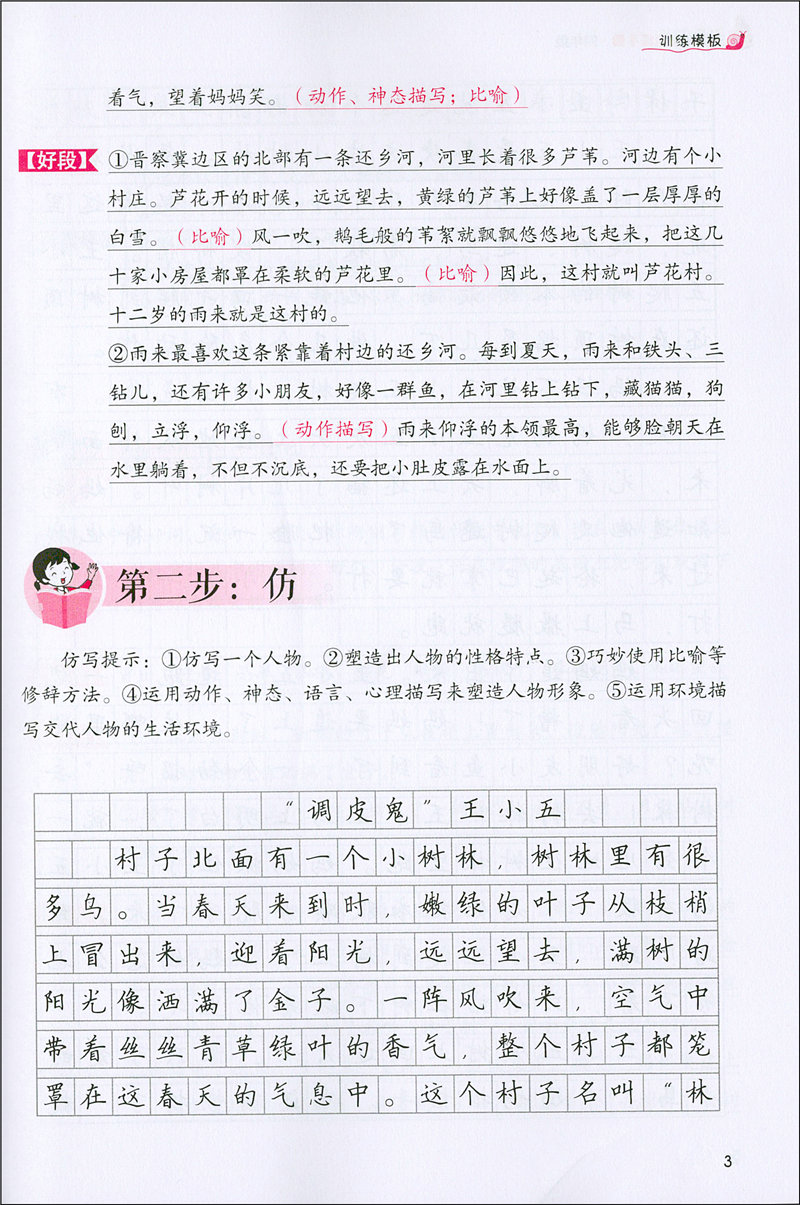 训练模板
着气，望着妈妈笑。（动作、神态描写；比喻）
【好段】①晋察冀边区的北部有一条还乡河，河里长着很多芦苇。河边有个小
村庄。芦花开的时候，远远望去，黄绿的芦苇上好像盖了一层厚厚的
白雪。（比喻）风一吹，鹅毛般的苇絮就飘飘悠悠地飞起来，把这几
十家小房屋都罩在柔软的芦花里。（比喻）因此，这村就叫芦花村。
十二岁的雨来就是这村的。
②雨来最喜欢这条紧靠着村边的还乡河。每到夏天，雨来和铁头、三
钻儿，还有许多小朋友，好像一群鱼，在河里钻上钻下，藏猫猫，狗
刨，立浮，仰浮。（动作描写）雨来仰浮的本领最高，能够脸朝天在
水里躺着，不但不沉底，还要把小肚皮露在水面上。
第二步：仿
仿写提示：①仿写一个人物。②塑造出人物的性格特点。③巧妙使用比喻等
修辞方法。④运用动作、神态、语言、心理描写来塑造人物形象。⑤运用环境描
写交代人物的生活环境。
“调皮鬼”王小五
村子北面有一个小树林，树林里有很
多鸟。当春天来到时，嫩绿的叶子从枝梢
上冒出来，迎着阳光，远远望去，满树的
阳光像洒满了金子。一阵风吹来，空气中
带着丝丝青草绿叶的香气，整个村子都笼
罩在这春天的气息中。这个村子名叫“林
3